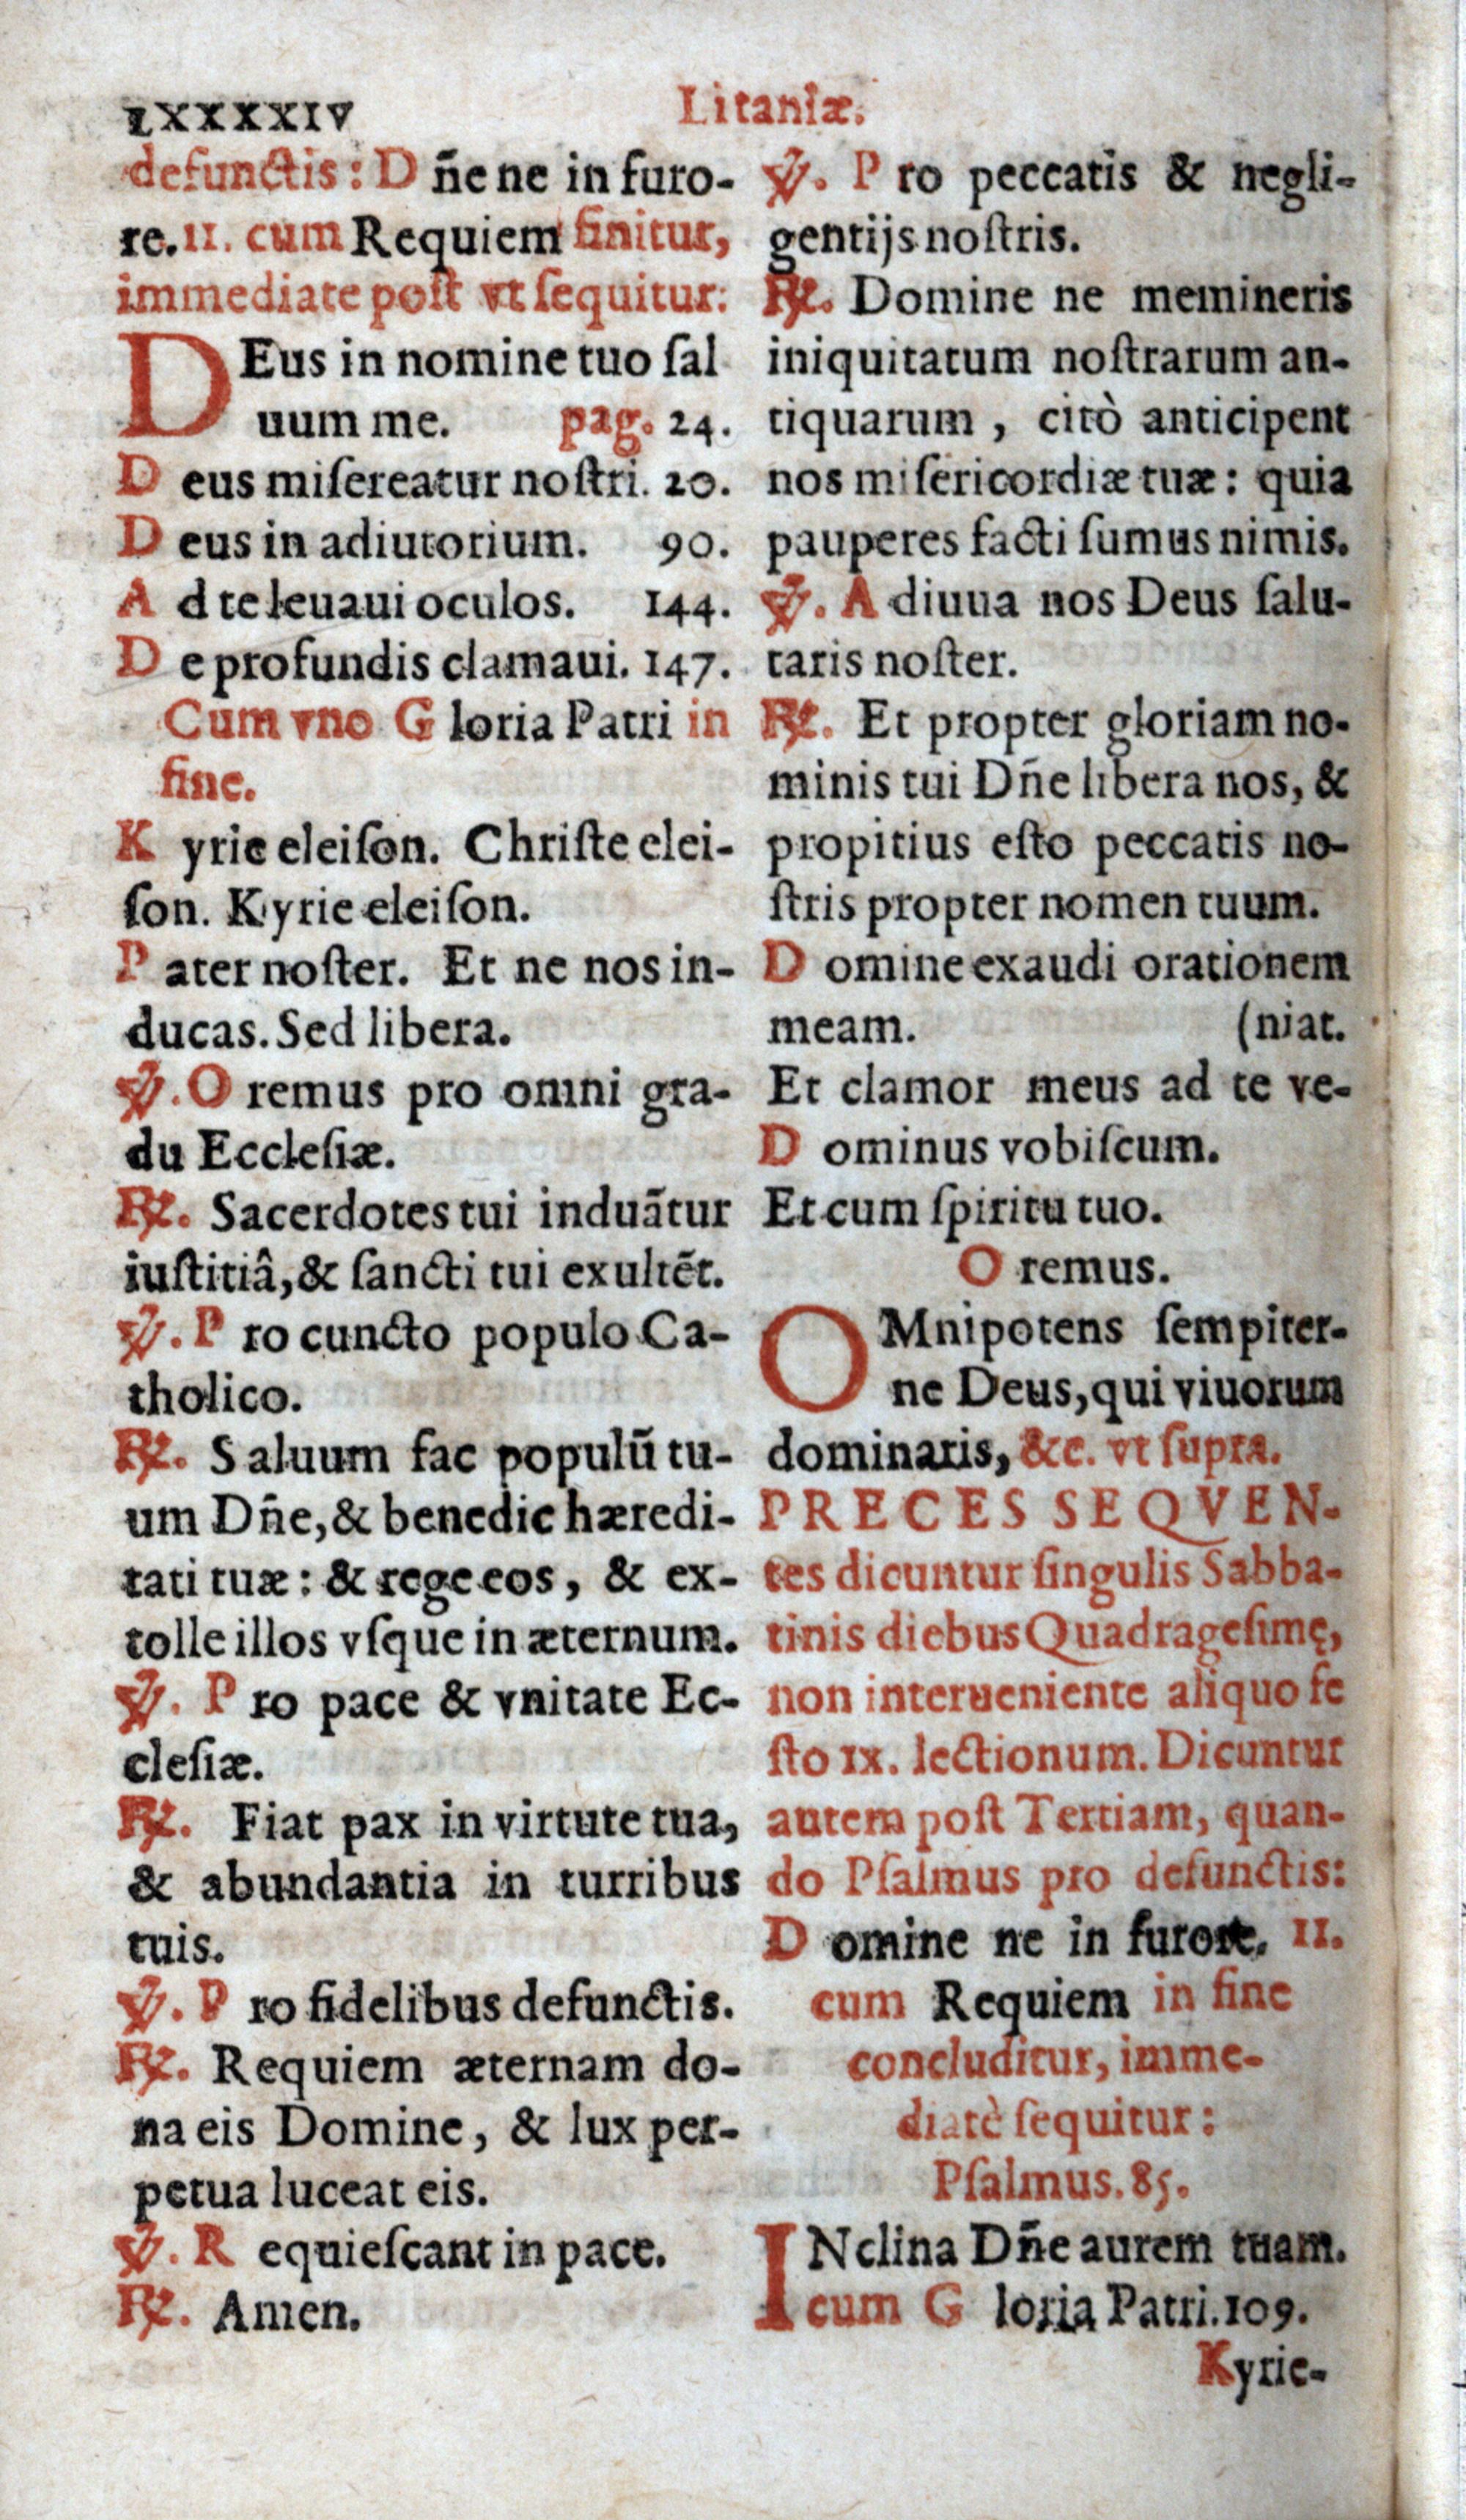 LXXXXIV
Litaniæ.
defunctis: Dñe ne in furo-
re. 11. cum Requiem finitur,
immediate post vt ſequitur:
DEus in nomine tuo ſal
uum me. pag. 24.
Deus miſereatur noſtri. 20.
Deus in adiutorium. 90.
Ad te leuaui oculos. 144.
De profundis clamaui. 147.
Cum vno Gloria Patri in
fine.
Kyrie eleiſon. Chriſte elei-
ſon. Kyrie eleiſon.
Pater noſter. Et ne nos in-
ducas. Sed libera.
℣. Oremus pro omni gra-
du Eccleſiæ.
℟. Sacerdotes tui induãtur
iuſtitiâ, & ſancti tui exultẽt.
℣. Pro cuncto populo Ca-
tholico.
℟. Saluum fac populũ tu-
um Dñe, & benedic hæredi-
tati tuæ: & rege eos, & ex-
tolle illos vſque in æternum.
℣. Pro pace & vnitate Ec-
cleſiæ.
℟. Fiat pax in virtute tua,
& abundantia in turribus
tuis.
℣. Pro fidelibus defunctis.
℟. Requiem æternam do-
na eis Domine, & lux per-
petua luceat eis.
℣. Requieſcant in pace.
℟. Amen.
℣. Pro peccatis & negli-
gentijs noſtris.
℟. Domine ne memineris
iniquitatum noſtrarum an-
tiquarum, citò anticipent
nos miſericordiæ tuæ: quia
pauperes facti ſumus nimis.
℣. Adiuua nos Deus ſalu-
taris noſter.
℟. Et propter gloriam no-
minis tui Dñe libera nos, &
propitius eſto peccatis no-
ſtris propter nomen tuum.
Domine exaudi orationem
meam. (niat.
Et clamor meus ad te ve-
Dominus vobiſcum.
Et cum ſpiritu tuo.
Oremus.
OMnipotens ſempiter-
ne Deus, qui viuorum
dominaris, &c. vt ſupra.
PRECES SEQVEN-
tes dicuntur ſingulis Sabba-
tinis diebus Quadrageſimę,
non interueniente aliquo fe
ſto IX. lectionum. Dicuntur
autem poſt Tertiam, quan-
do Pſalmus pro defunctis:
Domine ne in furore. 11.
cum Requiem in fine
concluditur, imme-
diatè ſequitur:
Pſalmus. 85.
INclina Dñe aurem tuam.
cum Gloria Patri. 109.
Kyrie-